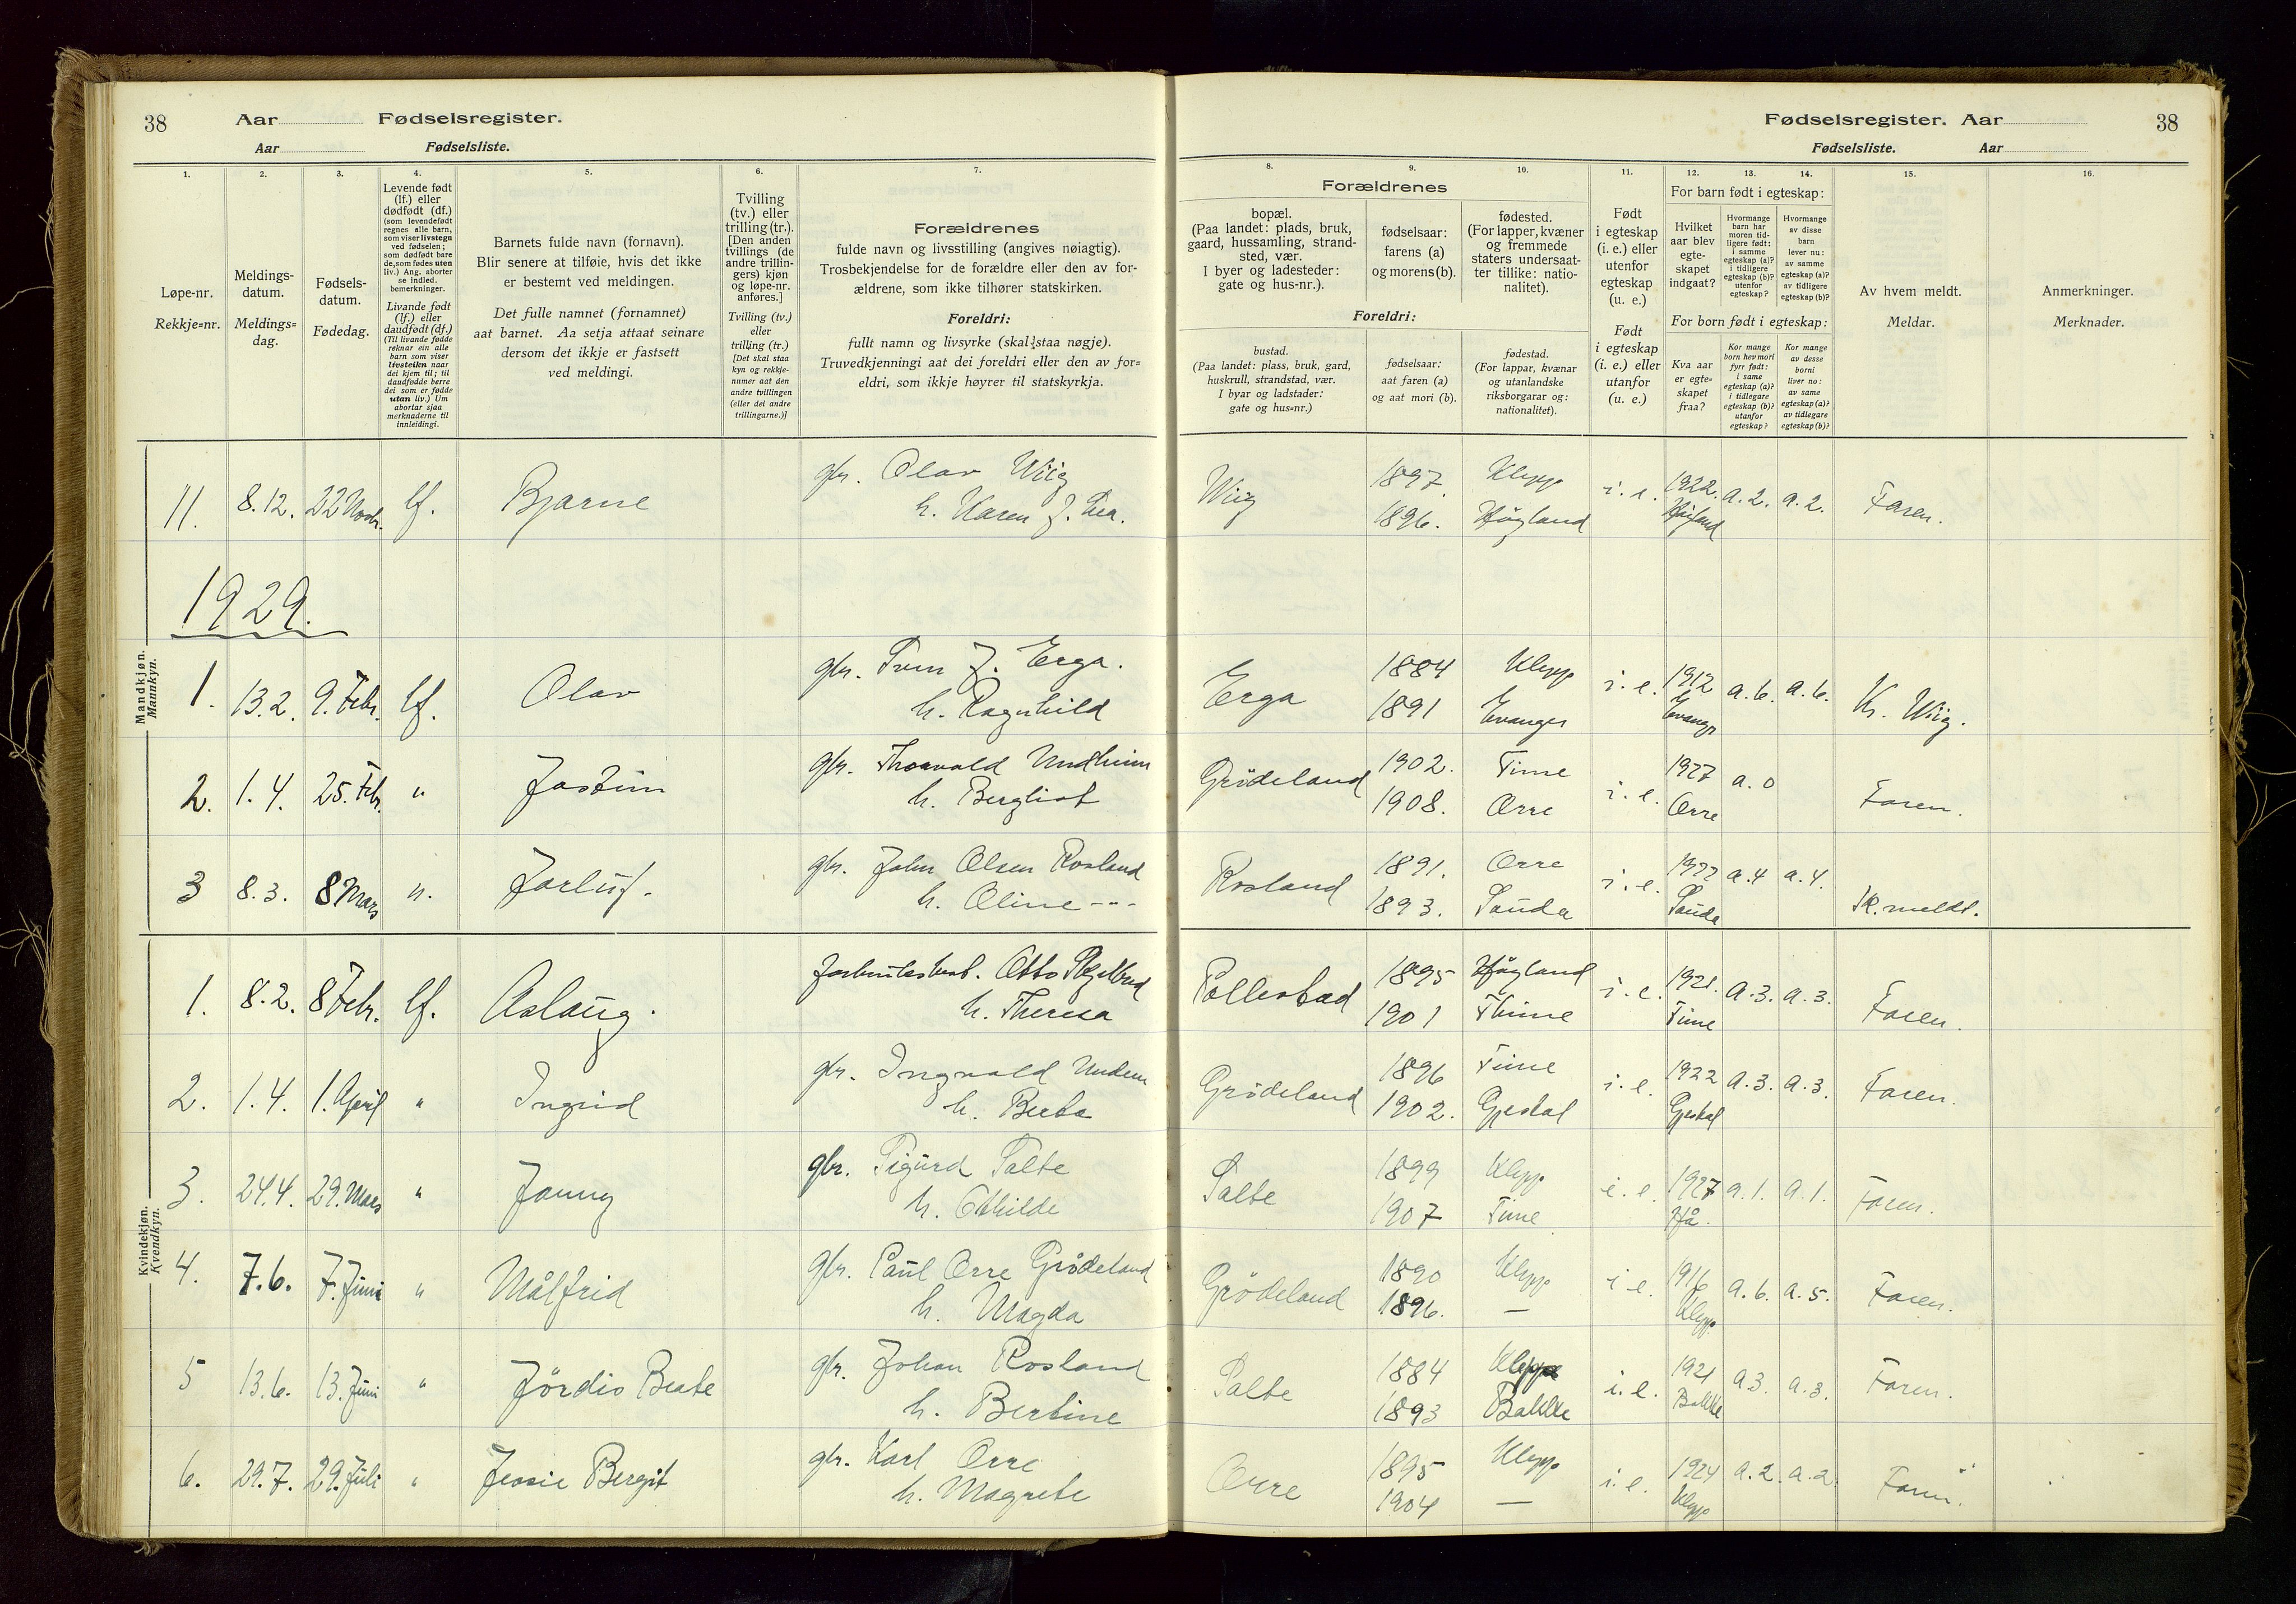 38 Aar Fødselsregister.
Aar Fødselsliste.
Fødselsregister. Aar 38
Fødselsliste. Aar
1.
Løpe-nr.
Rekkje=nr.
2.
Meldings-
datum.
Meldings=
dag.
3.
Fødsels-
datum.
Fødedag.
4.
Levende født
(lf.) eller
dødfødt (df.)
(som levendefødt
regnes alle barn,
som viser livstegn
ved fødselen;
som dødfødt bare
de, som fødes uten
liv.) Ang. aborter
se indled.
bemerkninger.
Livande født
(lf.) eller
daudfødt (df.)
(Til livande fødde
reknar ein alle
barn som viser
livsteikn naar
dei kjem til; til
daudfødde berre
dei som er fødde
utan liv.) Um
abortar sjaa
merknaderne til
innleidingi.
5.
Barnets fulde navn (fornavn).
Blir senere at tilføie, hvis det ikke
er bestemt ved meldingen.
Det fulle namnet (fornamnet)
aat barnet. Aa setja attaat seinare
dersom det ikkje er fastsett
ved meldingi.
6.
Tvilling
(tv.) eller
trilling (tr.).
[Den anden
tvillings (de
andre trillin-
gers) kjøn
og løpe-nr.
anføres.]
Tvilling (tv.)
eller
trilling (tr.)
[Det skal staa
kyn og rekkje-
numer aat den
andre tvillingen
(eller dei andre
trillingarne.)]
7.
Forældrenes
fulde navn og livsstilling (angives nøiagtig).
Trosbekjendelse for de forældre eller den av for-
ældrene, som ikke tilhører statskirken.
Foreldri:
fullt namn og livsyrke (skal staa nøgje).
Truvedkjenningi aat dei foreldri eller den av for=
eldri, som ikkje høyrer til statskyrkja.
Forældrenes
8.
bopæl.
(Paa landet: plads, bruk,
gaard, hussamling, strand-
sted, vær.
I byer og ladesteder:
gate og hus-nr.).
9.
fødselsaar:
farens (a)
og morens (b).
10.
fødested.
(For lapper, kvæner
og fremmede
staters undersaat-
ter tillike: natio-
nalitet).
Foreldri:
bustad.
(Paa landet: plass, bruk, gard,
huskrull, strandstad, vær.
I byar og ladstader:
gate og hus=nr.)
fødselsaar:
aat faren (a)
og aat mori (b).
fødestad.
(For lappar, kvænar
og utanlandske
riksborgarar og:
nationalitet).
11.
Født
i egteskap
(i. e.) eller
utenfor
egteskap
(u. e.)
Født
i egteskap
(i. e.) eller
utanfor
(u. e.)
For barn født i egteskap:
12.
Hvilket
aar blev
egte-
skapet
indgaat?
13.
Hvormange
barn har
moren tid-
ligere født:
i samme
egteskap (a)?
i tidligere
egteskap (b)?
utenfor
egteskap?
14.
Hvormange
av disse
barn
lever nu:
av samme
egteskap (a)?
av tidligere
egteskap (b)?
For born født i egteskap:
Kva aar
er egte=
skapet
fraa?
Kor mange
born hev mori
fyrr født:
i same
egteskap (a)?
i tidlegare
egteskap (b)?
utanfor
egteskap?
Kor mange
av desse
borni
liver no:
av same
egteskap (a)?
av tidlegare
egteskap (b)?
15.
Av hvem meldt.
Meldar.
16.
Anmerkninger.
Merknader.
Mandkjøn.
Mannkyn.
11. 8.12. 22 Novbr. lf. Bjarne gbr. Olav Wiig Wiig 1897. Klepp i. e. 1922. a. 2. a. 2. Faren.
h. Karen J. 1896. Høgland
1929.
1. 13.2. 9. Febr. lf. Olav gbr. Sven J. Erga. Erga 1884 Klepp i. e. 1912 a. 6. a. 6. Kr. Wiig.
h. Ragnhild 1891 Evanger Evanger
2. 1.4. 25. Feb. " Jostein gbr. Thorvald Undheim Grødeland 1902. Time i. e. 1927 a. 0 Faren.
h. Bergliot 1908. Orre Orre
3 8.3. 8 Mars ". Jarluf. gbr. John Olsen Rosland Rosland 1891. Orre i. e. 1922 a. 4 a. 4. Sk. meldt.
h. Oline --- 1893. Sauda Sauda
Kvindekjøn.
Kvendkyn.
1. 8.2. 8 Febr. lf. Aslaug. Otto Pollestad 1895 Høgland i. e. 1921. a. 3. a. 3. Faren.
h. Theresa 1901 Thime Time
2. 1.4. 1. April " Ingrid gbr. Ingvald Undem Grødeland 1896 Time i. e. 1922 a. 3. a. 3. Faren.
h. Berta 1902. Gjestal Gjestal
3. 24.4. 29. Mars " Jenny gbr. Sigurd Salte Salte 1899 Klepp i. e. 1927 a. 1. a. 1. Faren.
h. Othilde 1907 Time Hå.
4. 7.6. 7. Juni " Målfrid gbr. Paul Orre Grødeland Grødeland 1890 Klepp i e. 1916 a. 6. a. 5. Faren.
h. Magda 1896. — Klepp
5 13.6. 13. Juni " Jørdis Beate gbr. Johan Rosland Salte 1884 Klepp i. e. 1921 a 3. a. 3. Faren.
h. Bertine 1893 Bakke Bakke
6. 29.7. 29. Juli " Jessie Bergit gbr. Karl Orre Orre 1895 Klepp i. e. 1924 a. 2. a. 2. Faren.
h. Magrete 1904 — Klepp